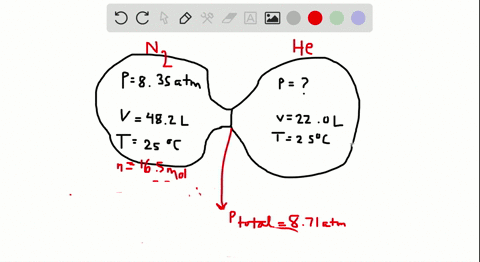 N2
P=8.35atm
V=48.2L
T=25°C
n=16.5mol
He
P=?
v=22.0L
T=25°C
Ptotal=8.71atm